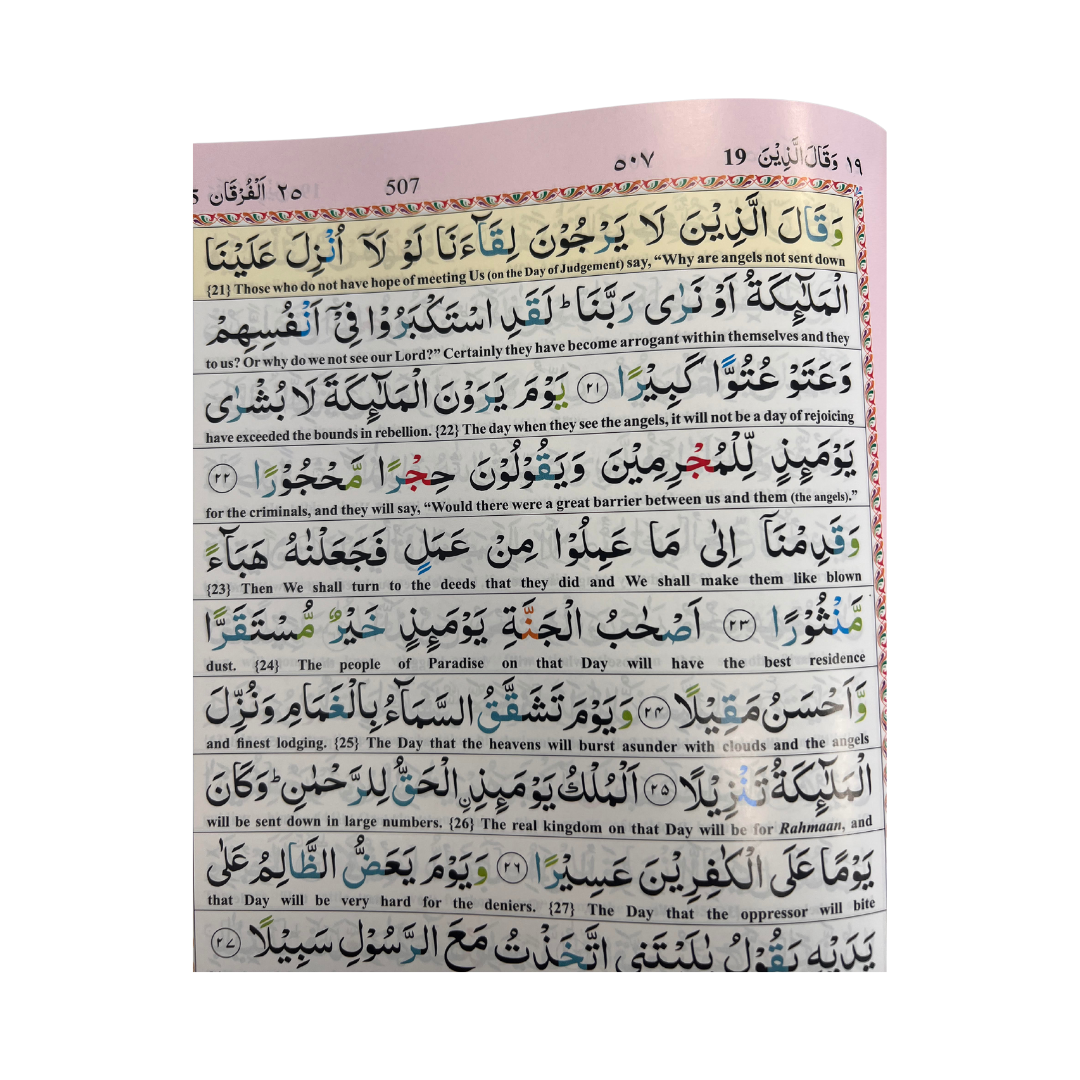 ١٩ وَقَالَ الَّذِيْنَ 19 ٥٠٧ 507 ٢٥ اَلْفُرْقَان 5
وَقَالَ الَّذِيْنَ لَا يَرْجُوْنَ لِقَآءَنَا لَوْ لَآ اُنْزِلَ عَلَيْنَا
{21} Those who do not have hope of meeting Us (on the Day of Judgement) say, “Why are angels not sent down
الْمَلٰٓئِكَةُ اَوْ نَرٰى رَبَّنَا ؕ لَقَدِ اسْتَكْبَرُوْا فِيْۤ اَنْفُسِهِمْ
to us? Or why do we not see our Lord?” Certainly they have become arrogant within themselves and they
وَعَتَوْ عُتُوًّا كَبِيْرًا ٢١ يَوْمَ يَرَوْنَ الْمَلٰٓئِكَةَ لَا بُشْرٰى
have exceeded the bounds in rebellion. {22} The day when they see the angels, it will not be a day of rejoicing
يَوْمَئِذٍ لِّلْمُجْرِمِيْنَ وَيَقُوْلُوْنَ حِجْرًا مَّحْجُوْرًا ٢٢
for the criminals, and they will say, “Would there were a great barrier between us and them (the angels).”
وَقَدِمْنَآ اِلٰى مَا عَمِلُوْا مِنْ عَمَلٍ فَجَعَلْنٰهُ هَبَآءً
{23} Then We shall turn to the deeds that they did and We shall make them like blown
مَّنْثُوْرًا ٢٣ اَصْحٰبُ الْجَنَّةِ يَوْمَئِذٍ خَيْرٌ مُّسْتَقَرًّا
dust. {24} The people of Paradise on that Day will have the best residence
وَّاَحْسَنُ مَقِيْلًا ٢٤ وَيَوْمَ تَشَقَّقُ السَّمَآءُ بِالْغَمَامِ وَنُزِّلَ
and finest lodging. {25} The Day that the heavens will burst asunder with clouds and the angels
الْمَلٰٓئِكَةُ تَنْزِيْلًا ٢٥ اَلْمُلْكُ يَوْمَئِذِ ۨالْحَقُّ لِلرَّحْمٰنِ ؕ وَكَانَ
will be sent down in large numbers. {26} The real kingdom on that Day will be for Rahmaan, and
يَوْمًا عَلَى الْكٰفِرِيْنَ عَسِيْرًا ٢٦ وَيَوْمَ يَعَضُّ الظَّالِمُ عَلٰى
that Day will be very hard for the deniers. {27} The Day that the oppressor will bite
يَدَيْهِ يَقُوْلُ يٰلَيْتَنِى اتَّخَذْتُ مَعَ الرَّسُوْلِ سَبِيْلًا ٢٧